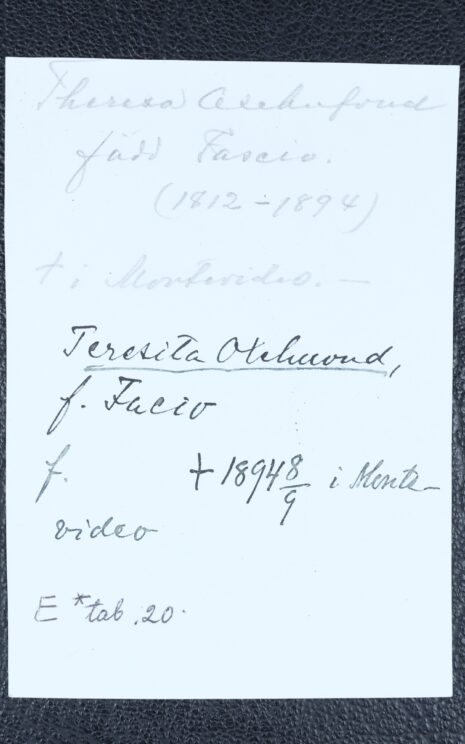 Theresa Oxehufvud
född Fascio.
(1812-1894)
† i Montevideo. —
Teresita Oxehuvud,
f. Facio
f. † 1894 8/9 i Monte-
video
E *tab. 20.